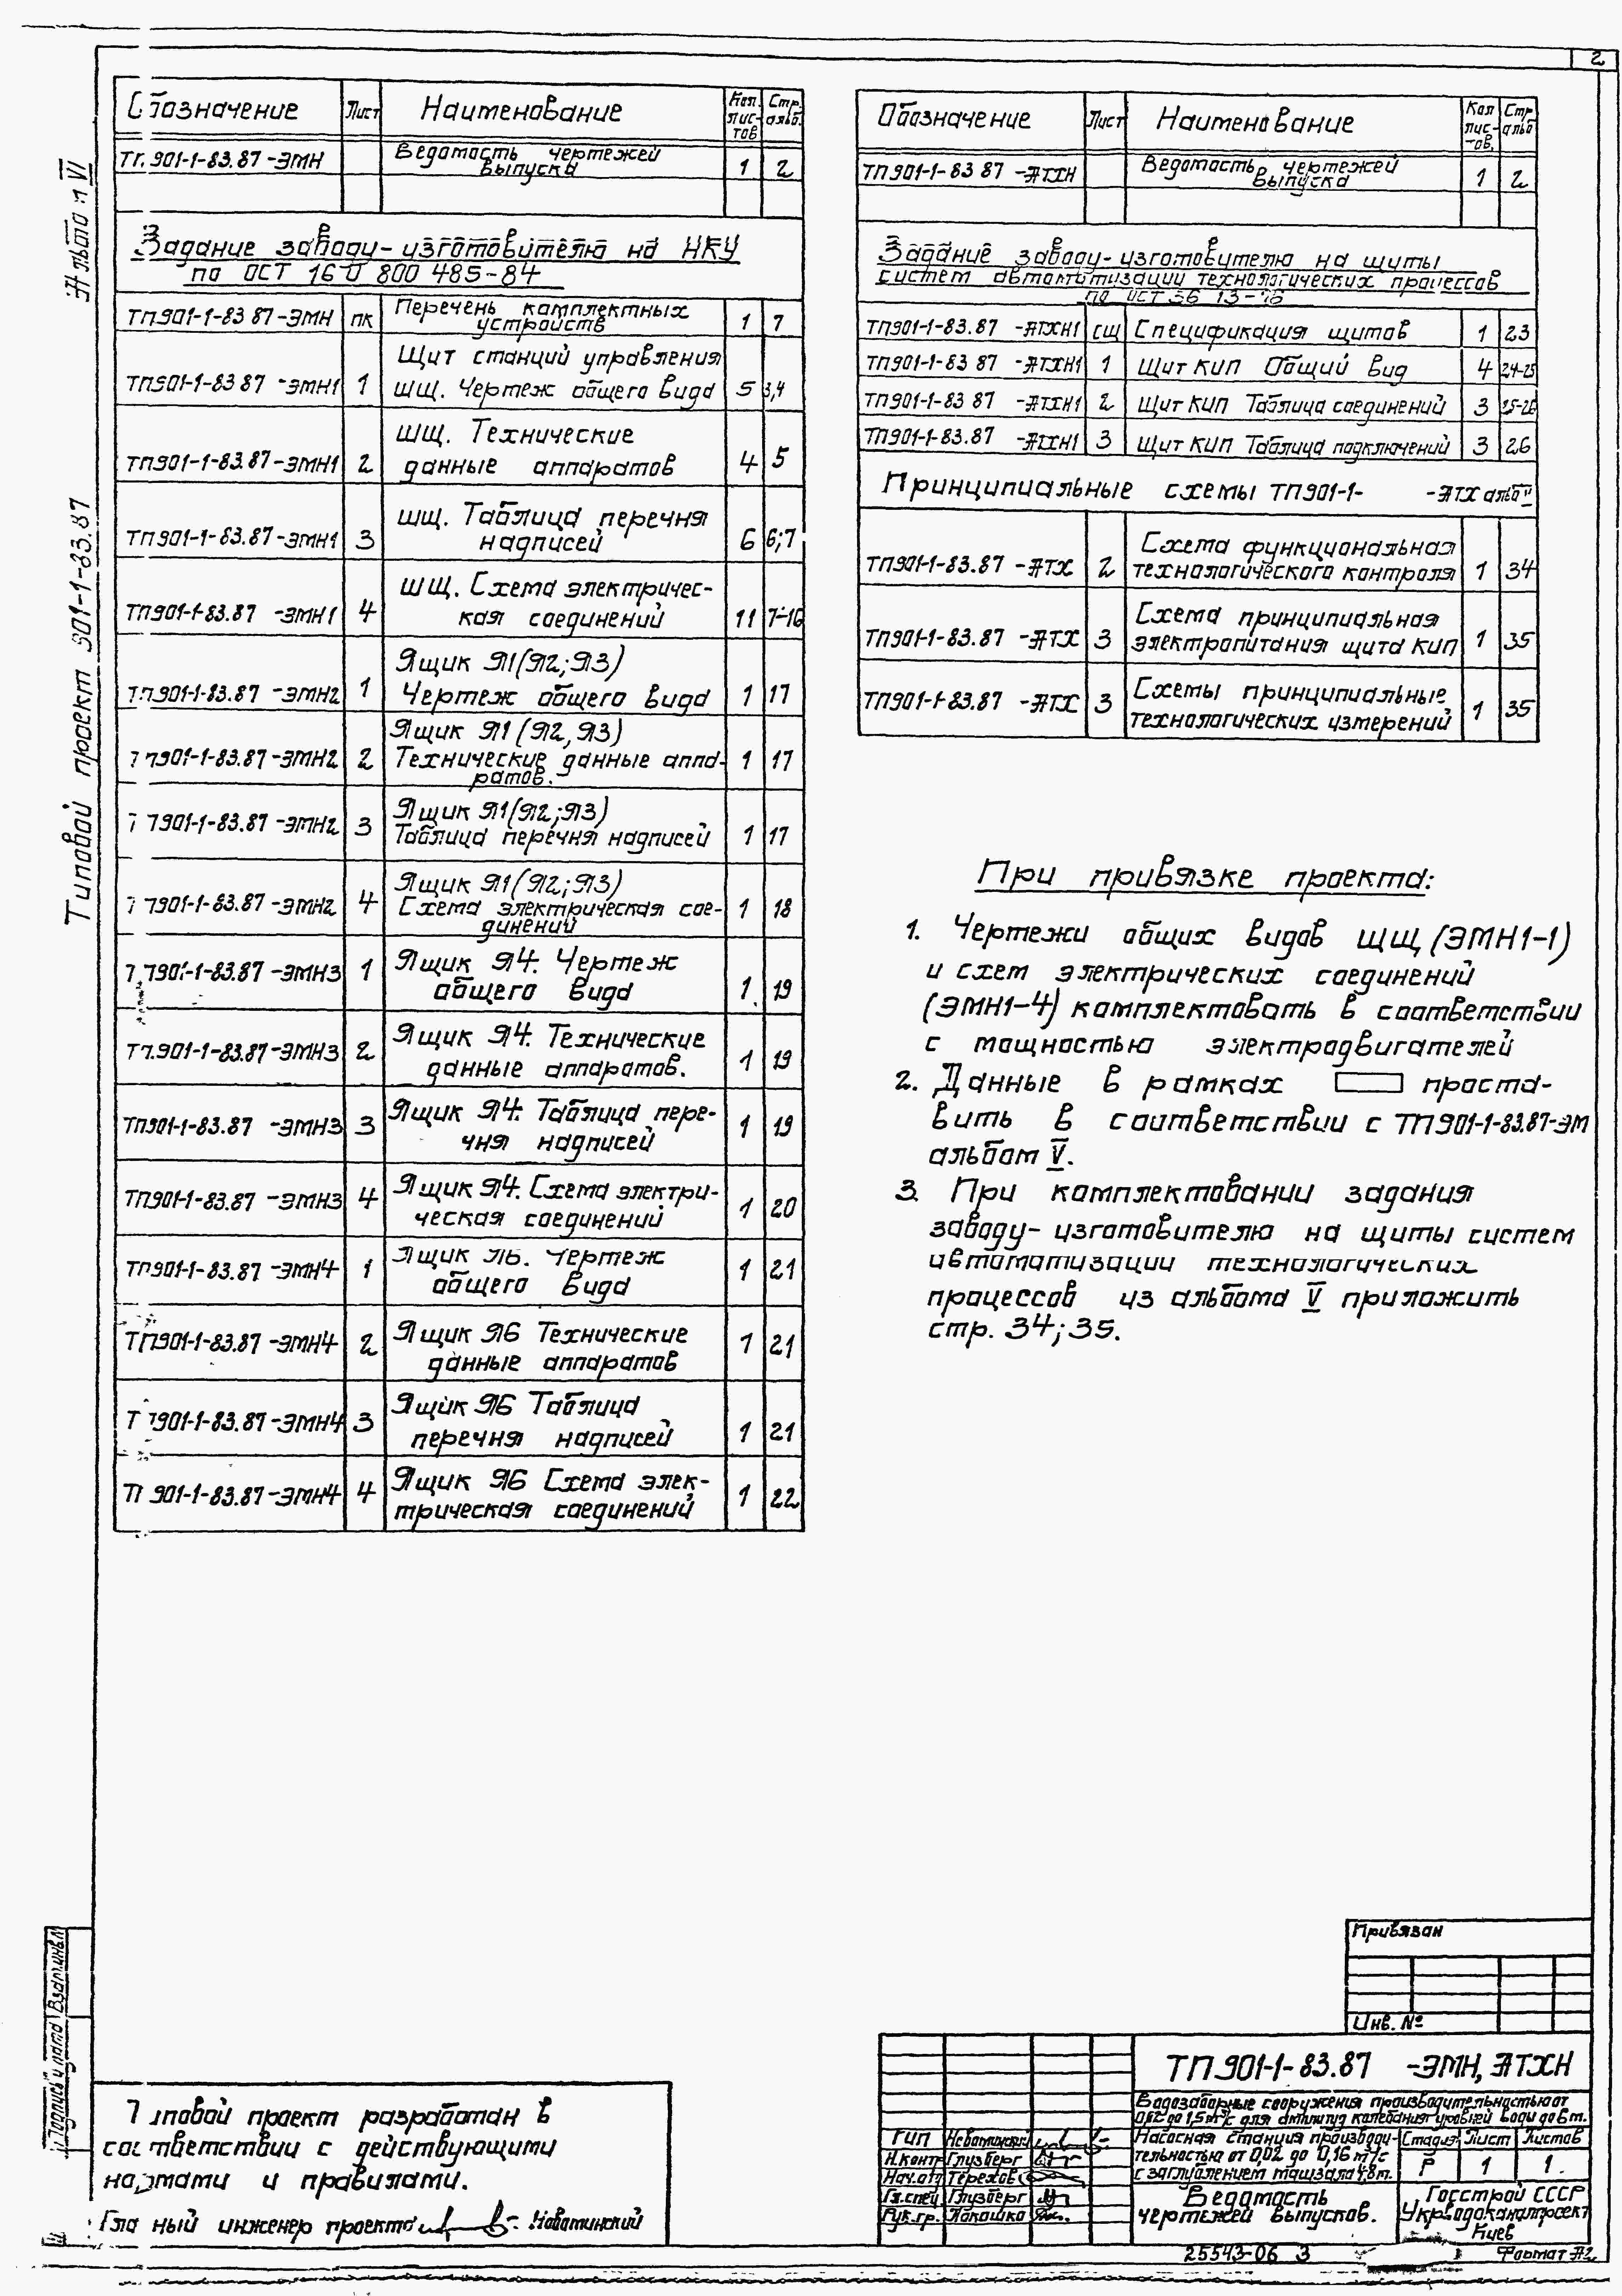 2
Альбом VI
Типовой проект 901-1-83.87
Обозначение Лист Наименование Кол. лис-тов Стр. альб.
ТП 901-1-83.87 -ЭМН Ведомость чертежей выпуска 1 2
Задание заводу-изготовителю на НКУ
по ОСТ 16 0 800 485-84
ТП901-1-83 87-ЭМН ПК Перечень комплектных устройств 1 7
ТП901-1-83 87 -ЭМН1 1 Щит станций управления
ШЩ. Чертеж общего вида 5 3,4
ТП901-1-83.87-ЭМН1 2 ШЩ. Технические
данные аппаратов 4 5
ТП901-1-83.87-ЭМН1 3 ШЩ. Таблица перечня
надписей 6 6;7
ТП901-1-83.87 -ЭМН1 4 ШЩ. Схема электричес-
кая соединений 11 7-16
ТП901-1-83.87 -ЭМН2 1 Ящик Я1(Я2;Я3)
Чертеж общего вида 1 17
ТП901-1-83.87-ЭМН2 2 Ящик Я1(Я2,Я3)
Технические данные аппа-
ратов. 1 17
ТП901-1-83.87 -ЭМН2 3 Ящик Я1(Я2;Я3)
Таблица перечня надписей 1 17
ТП901-1-83.87 -ЭМН2 4 Ящик Я1(Я2;Я3)
Схема электрическая сое-
динений 1 18
ТП901-1-83.87 -ЭМН3 1 Ящик Я4. Чертеж
общего вида 1 19
ТП.901-1-83.87-ЭМН3 2 Ящик Я4. Технические
данные аппаратов. 1 19
ТП901-1-83.87 -ЭМН3 3 Ящик Я4. Таблица пере-
чня надписей 1 19
ТП901-1-83.87 -ЭМН3 4 Ящик Я4. Схема электри-
ческая соединений 1 20
ТП901-1-83.87 -ЭМН4 1 Ящик Я6. Чертеж
общего вида 1 21
ТП901-1-83.87 -ЭМН4 2 Ящик Я6 Технические
данные аппаратов 1 21
ТП901-1-83.87 -ЭМН4 3 Ящик Я6 Таблица
перечня надписей 1 21
ТП 901-1-83.87-ЭМН4 4 Ящик Я6 Схема элек-
трическая соединений 1 22
Обозначение Лист Наименование Кол лис-тов. Стр альб
ТП901-1-83 87 -АТХН Ведомость чертежей выпуска 1 2
Задание заводу-изготовителю на щиты
систем автоматизации технологических процессов
по ОСТ 36 13-76
ТП901-1-83.87 -АТХН1 СЩ Спецификация щитов 1 23
ТП901-1-83 87 -АТХН1 1 Щит КИП Общий вид 4 24-25
ТП901-1-83 87 -АТХН1 2 Щит КИП Таблица соединений 3 25-26
ТП901-1-83.87 -АТХН1 3 Щит КИП Таблица подключений 3 26
Принципиальные схемы ТП901-1- -АТХ альб V
ТП901-1-83.87 -АТХ 2 Схема функциональная
технологического контроля 1 34
ТП901-1-83.87 -АТХ 3 Схема принципиальная
электропитания щита КИП 1 35
ТП901-1-83.87 -АТХ 3 Схемы принципиальные
технологических измерений 1 35
При привязке проекта:
1. Чертежи общих видов ЩЩ (ЭМН1-1)
и схем электрических соединений
(ЭМН1-4) комплектовать в соответствии
с мощностью электродвигателей
2. Данные в рамках проста-
вить в соответствии с ТП901-1-83.87-ЭМ
альбом V.
3. При комплектовании задания
заводу-изготовителю на щиты систем
автоматизации технологических
процессов из альбома V приложить
стр. 34; 35.
Привязан
Инв. №
Взам.инв.N
Подпись и дата
Типовой проект разработан в
соответствии с действующими
нормами и правилами.
Главный инженер проекта Новотинский
ТП901-1-83.87 -ЭМН, АТХН
Водозаборные сооружения производительностью от
0,02 до 1,5 м³/с для амплитуд колебания уровней воды до 6 м.
ГИП Новотинский
Н.контр Глузберг
Нач.отд Терехов
Гл.спец. Глузберг
Рук.гр. Кокошко
Насосная станция производи-
тельностью от 0,02 до 0,16 м³/с
с заглублением машзала 4,8 м.
Стадия Лист Листов
Р 1 1.
Ведомость
чертежей выпусков.
Госстрой СССР
Укрводоканалпроект
Киев
25543-06 3
Формат А2